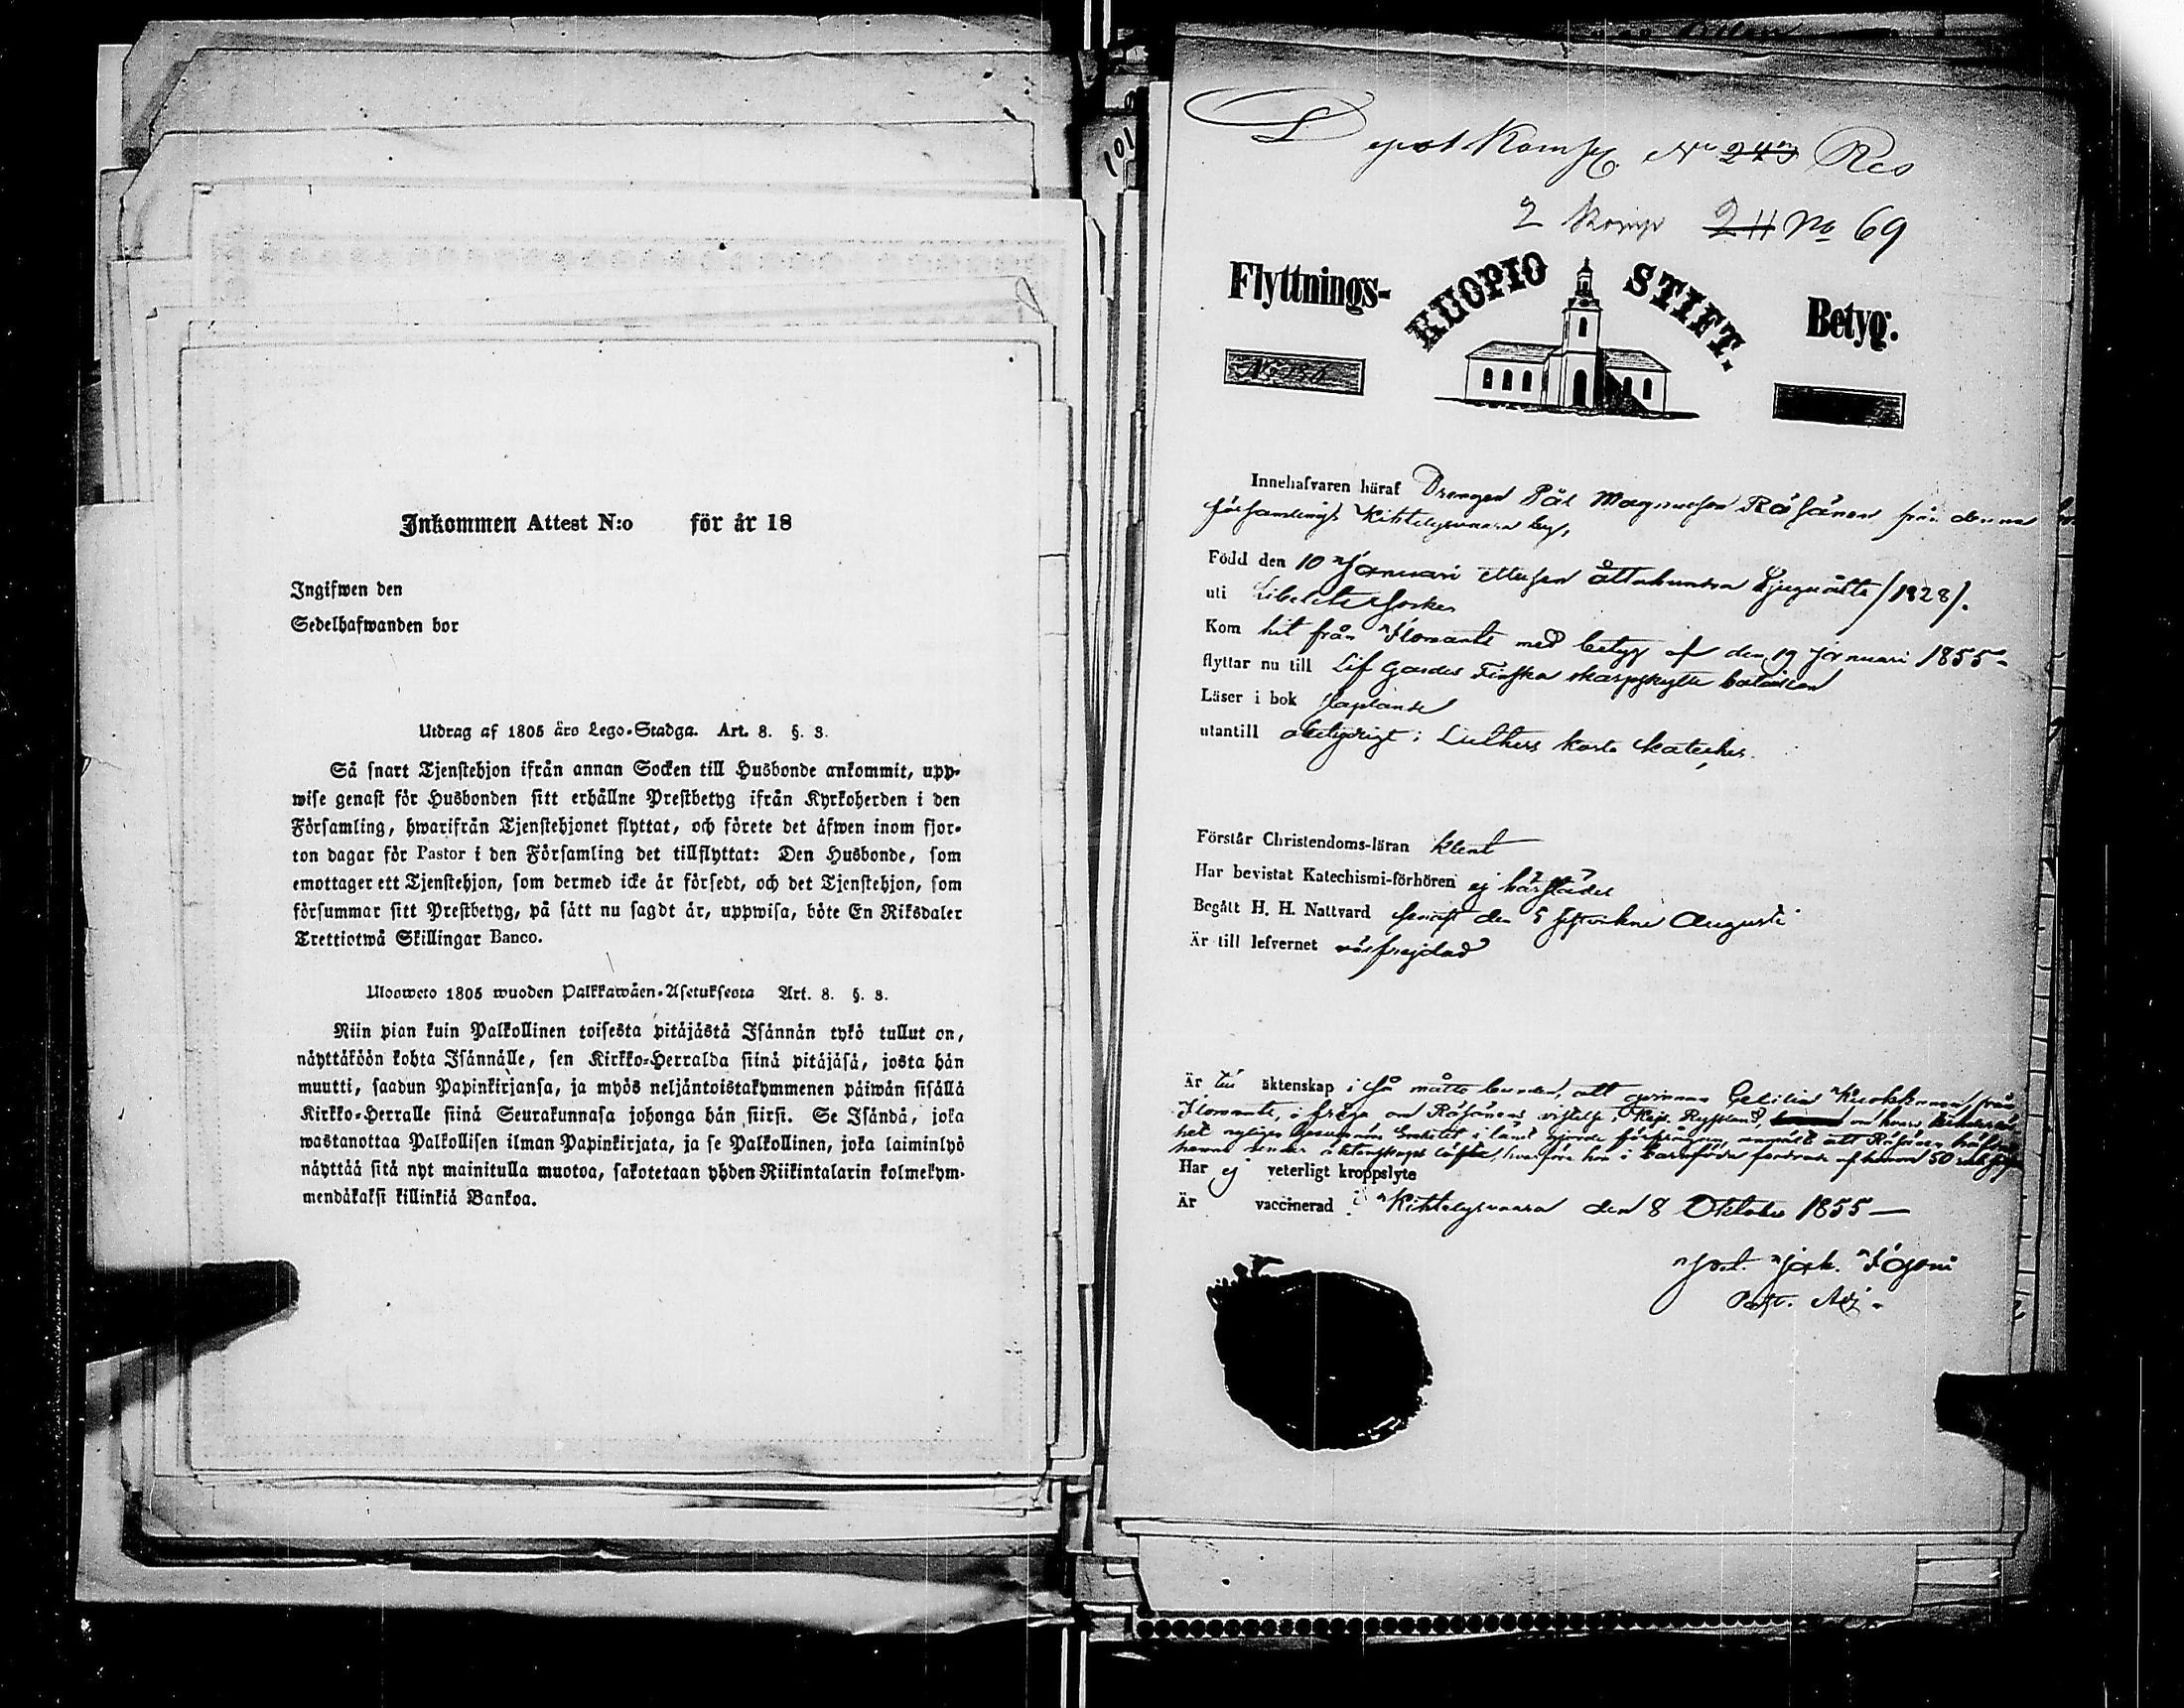 Inkommen Attest N:o för år 18
Ingifwen den
Sedelhafwanden bor
Utdrag af 1805 års Lego-Stadga. Art. 8. §. 3.
Så snart Tjenstehjon ifrån annan Socken till Husbonde ankommit, upp-
wise genast för Husbonden sitt erhållne Prestbetyg ifrån Kyrkoherden i den
Församling, hwarifrån Tjenstehjonet flyttat, och förete det äfwen inom fjor-
ton dagar för Pastor i den Församling det tillflyttat: Den Husbonde, som
emottager ett Tjenstehjon, som dermed icke är försedt, och det Tjenstehjon, som
försummar sitt Prestbetyg, på sätt nu sagdt är, uppwisa, böte En Riksdaler
Trettiotwå Skillingar Banco.
Ulosweto 1805 wuoden Palkkawäen-Asetuksesta Art. 8. §. 3.
Niin pian kuin Palkollinen toisesta pitäjästä Isännän tykö tullut on,
näyttäköön kohta Isännälle, sen Kirkko-Herralda siinä pitäjäsä, josta hän
muutti, saadun Papinkirjansa, ja myös neljäntoistakymmenen päiwän sisällä
Kirkko-Herralle siinä Seurakunnasa johonga hän siirsi. Se Isändä, joka
wastanottaa Palkollisen ilman Papinkirjata, ja se Palkollinen, joka laiminlyö
näyttää sitä nyt mainitulla muotoa, sakotetaan yhden Riikintalarin kolmekym-
mendäkaksi killinkiä Bankoa.
101
Depot Komp No 243 Res
2 Komp 211 No 69
Flyttnings- KUOPIO STIFT. Betyg.
Innehafvaren häraf Drengen Pål Magnusson Räsänen från denna
församlings Kihtelysvaara by,
Född den 10 Januari ettusen åttahundra tjuguåtta /1828/.
uti Libelits socken
Kom hit från Ilomants med betyg af den 19 Januari 1855-
flyttar nu till Lif Gardes Finska skarpskytte bataillon
Läser i bok
utantill i Luthers korta kateches.
Förstår Christendoms-läran klent
Har bevistat Katechismi-förhören ej härstädes
Begått H. H. Nattvard senast den 5 sistvekne Augusti
Är till lefvernet wälfrejdad
Är till äktenskap i så måtto bunden, att qvinnan Cecilia Kuokkanen från
Ilomants, i fråga om Räsänens vistelse i Kejs. Ryssland, om hvars
att Räsänen
henne under äktenskaps löfte, hvarföre hon i barnföda fordrade af honom 50
Har ej veterligt kroppslyte
Är vaccinerad i Kihtelysvaara den 8 Oktober 1855—
Past. Adj.